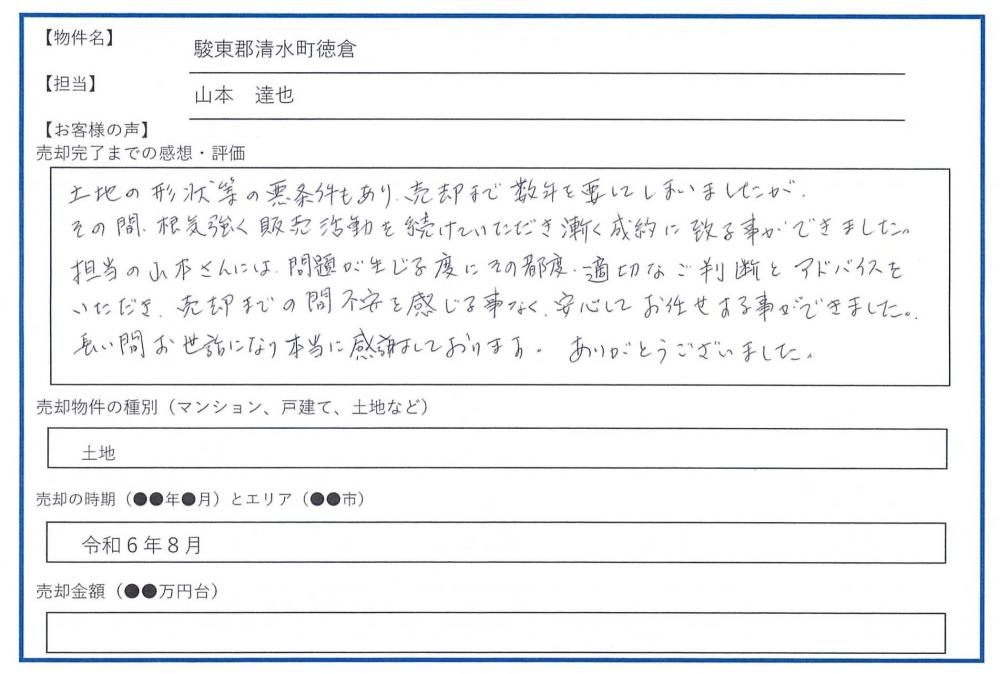 【物件名】
駿東郡清水町徳倉
【担当】
山本　達也
【お客様の声】
売却完了までの感想・評価
土地の形状等の悪条件もあり、売却まで数年を要してしまいましたが、
その間、根気強く販売活動を続けていただき漸く成約に致る事ができました。
担当の山本さんには、問題が生じる度にその都度、適切なご判断とアドバイスを
いただき、売却までの間不安を感じる事なく、安心してお任せする事ができました。
長い間お世話になり本当に感謝しております。　ありがとうございました。
売却物件の種別（マンション、戸建て、土地など）
土地
売却の時期（●●年●月）とエリア（●●市）
令和６年８月
売却金額（●●万円台）